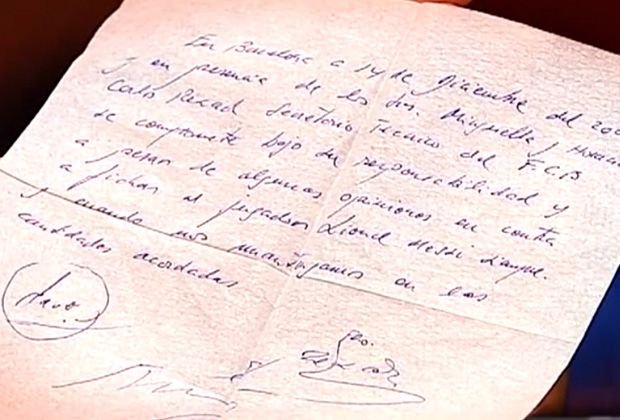 En Barcelona a 14 de Diciembre del 200
y en presencia de los Srs. Minguella y Horacio
Carlos Rexach Secretario Técnico del F.C.B
se compromete bajo su responsabilidad y
a pesar de algunas opiniones en contra
a fichar al jugador Lionel Messi
y cuando nos mantengamos en las
cantidades acordadas